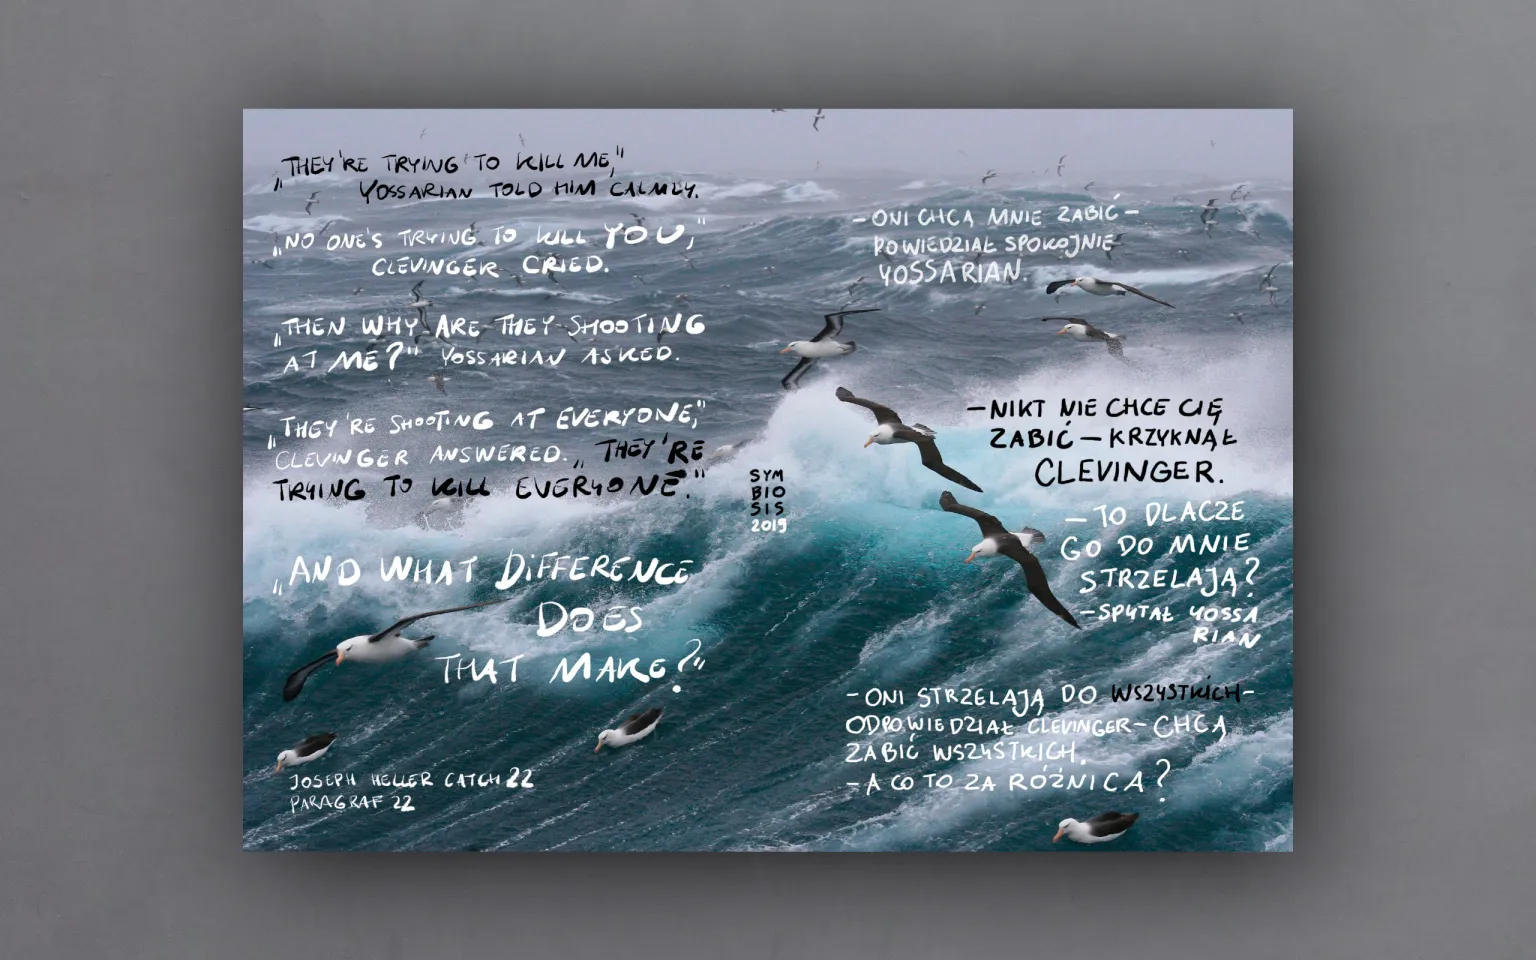 „THEY'RE TRYING TO KILL ME,"
YOSSARIAN TOLD HIM CALMLY.
„NO ONE'S TRYING TO KILL YOU,"
CLEVINGER CRIED.
„THEN WHY ARE THEY SHOOTING
AT ME?" YOSSARIAN ASKED.
„THEY'RE SHOOTING AT EVERYONE,"
CLEVINGER ANSWERED. „THEY'RE
TRYING TO KILL EVERYONE."
„AND WHAT DIFFERENCE
DOES
THAT MAKE?"
JOSEPH HELLER CATCH 22
PARAGRAF 22
SYM
BIO
SIS
2019
– ONI CHCĄ MNIE ZABIĆ –
POWIEDZIAŁ SPOKOJNIE
YOSSARIAN.
– NIKT NIE CHCE CIĘ
ZABIĆ – KRZYKNĄŁ
CLEVINGER.
– TO DLACZE
GO DO MNIE
STRZELAJĄ?
– SPYTAŁ YOSSA
RIAN
– ONI STRZELAJĄ DO WSZYSTKICH –
ODPOWIEDZIAŁ CLEVINGER – CHCĄ
ZABIĆ WSZYSTKICH.
– A CO TO ZA RÓŻNICA?